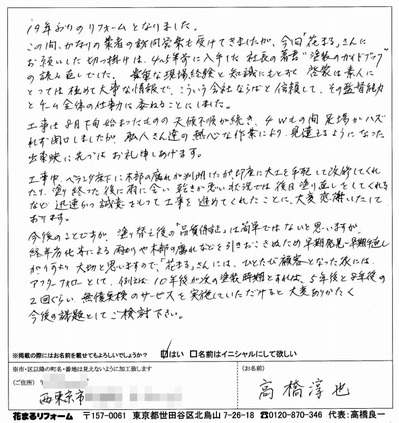 19年ぶりのリフォームとなりました。
この間、かなりの業者の訪問営業も受けてきましたが、今回「花まる」さんに
お願いした切っ掛けは、4〜5年前に入手した社長の著書"塗装のガイドブック"
の読み返しでした。貴重な現場経験と知識にもとづく啓蒙は素人に
とっては極めて大事な情報で、こういう会社ならばと信頼して、その監督能力
とチーム全体の仕事力に委ねることにしました。
工事は8月下旬始まったものの天候不順が続き、4Wもの間足場がハズ
れず閉口しましたが、職人さん達の熱心な作業により、見違えるようになった
出来映に先づはお礼申しあげます。
工事中、ベランダ床下に木部の腐れが判明したが即座に大工を手配して改修してくれ
たり、塗り終った後に雨に会い乾きが悪い状況では後日塗り直しをしてくれる
など迅速かつ誠実として工事を進めてくれたことに、大変感謝いたして
おります。
今後のことですが、塗り替え後の「品質保証」は簡単ではないと思いますが、
経年劣化等による雨漏りや木部の腐れなどを引きおこさぬための早期発見・早期手直し
がなにより大切と思いますので、「花まる」さんには、ひとたび顧客となった家には、
アフターフォローとして、例えば10年後が次の塗装時期とすれば、5年後と8年後の
2回ぐらい無償点検のサービスを実施していただけると大変ありがたく
今後の課題としてご検討下さい。
※掲載の際にはお名前を載せてもよろしいでしょうか? ☑はい □名前はイニシャルにして欲しい
※市・区以降の町名・番地は見えないように加工致します
(ご住所)
西東京市
(お名前)
高橋淳也
花まるリフォーム 〒157-0061 東京都世田谷区北烏山7-26-18 ☎0120-870-346 代表:高橋良一